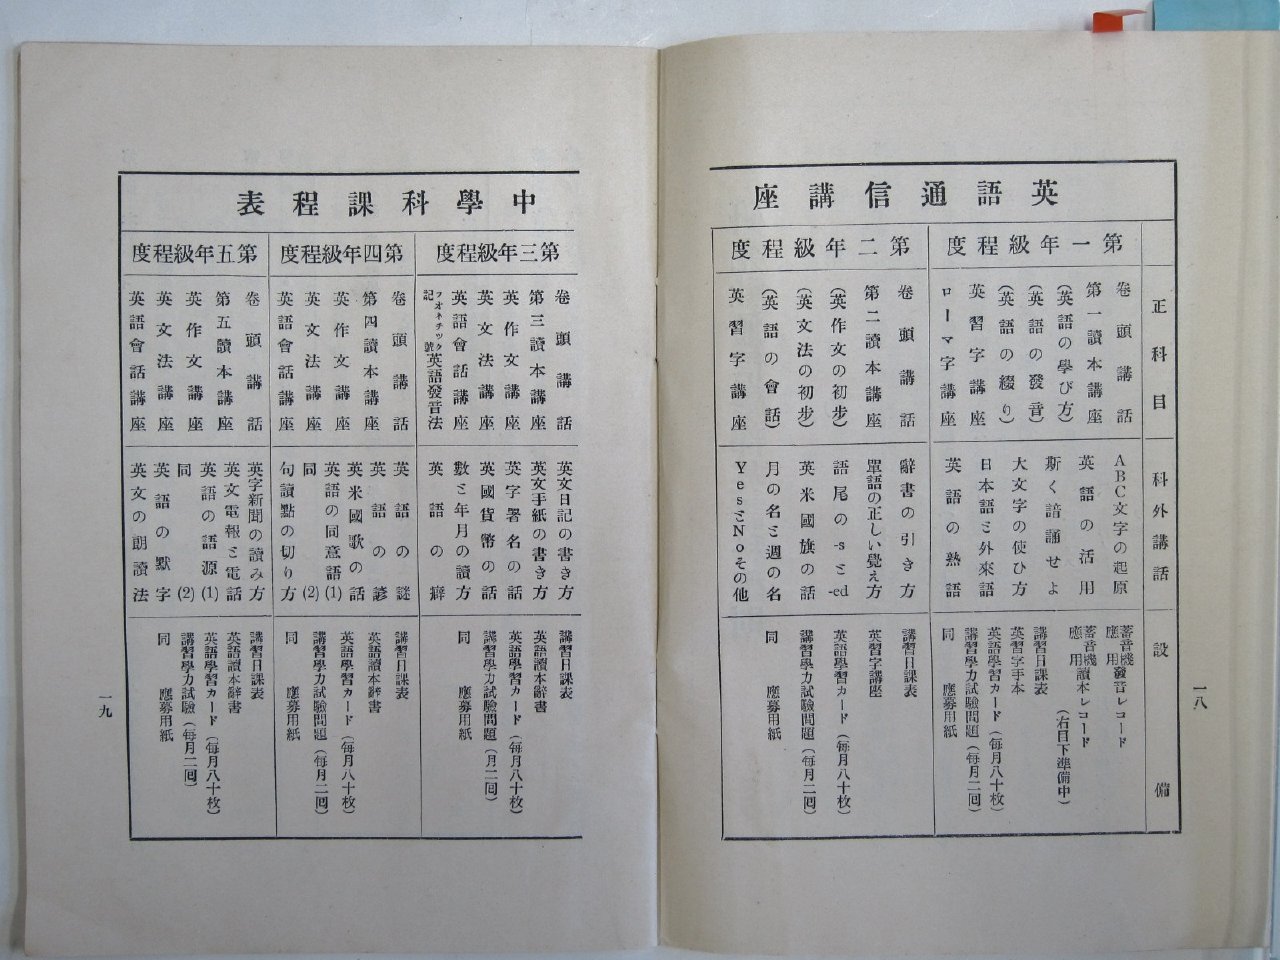 英語通信講座
正科目
科外講話
設備
第一年級程度
卷頭講話
第一讀本講座
(英語の學び方)
(英語の發音)
(英語の綴り)
英習字講座
ローマ字講座
ABC文字の起原
英語の活用
斯く諳誦せよ
大文字の使ひ方
日本語と外來語
英語の熟語
蓄音機應用發音レコード
蓄音機應用讀本レコード
(右目下準備中)
講習日課表
英習字手本
英語學習カード(每月八十枚)
講習學力試驗問題(每月二回)
同應募用紙
第二年級程度
卷頭講話
第二讀本講座
(英作文の初步)
(英文法の初步)
(英語の會話)
英習字講座
辭書の引き方
單語の正しい覺え方
語尾の-sと-ed
英米國旗の話
月の名と週の名
YesとNoその他
講習日課表
英習字講座
英語學習カード(每月八十枚)
講習學力試驗問題(每月二回)
同應募用紙
一八
中學科課程表
第三年級程度
卷頭講話
第三讀本講座
英作文講座
英文法講座
英語會話講座
フオネチック記號英語發音法
英文日記の書き方
英文手紙の書き方
英字署名の話
英國貨幣の話
數と年月の讀方
英語の癖
講習日課表
英語讀本辭書
英語學習カード(每月八十枚)
講習學力試驗問題(月二回)
同應募用紙
第四年級程度
卷頭講話
第四讀本講座
英作文講座
英文法講座
英語會話講座
英語の謎
英語の諺
英米國歌の話
英語の同意語(1)
同(2)
句讀點の切り方
講習日課表
英語讀本辭書
英語學習カード(每月八十枚)
講習學力試驗問題(每月二回)
同應募用紙
第五年級程度
卷頭講話
第五讀本講座
英作文講座
英文法講座
英語會話講座
英字新聞の讀み方
英文電報と電話
英語の語源(1)
同(2)
英語の默字
英文の朗讀法
講習日課表
英語讀本辭書
英語學習カード(每月八十枚)
講習學力試驗(每月二回)
同應募用紙
一九